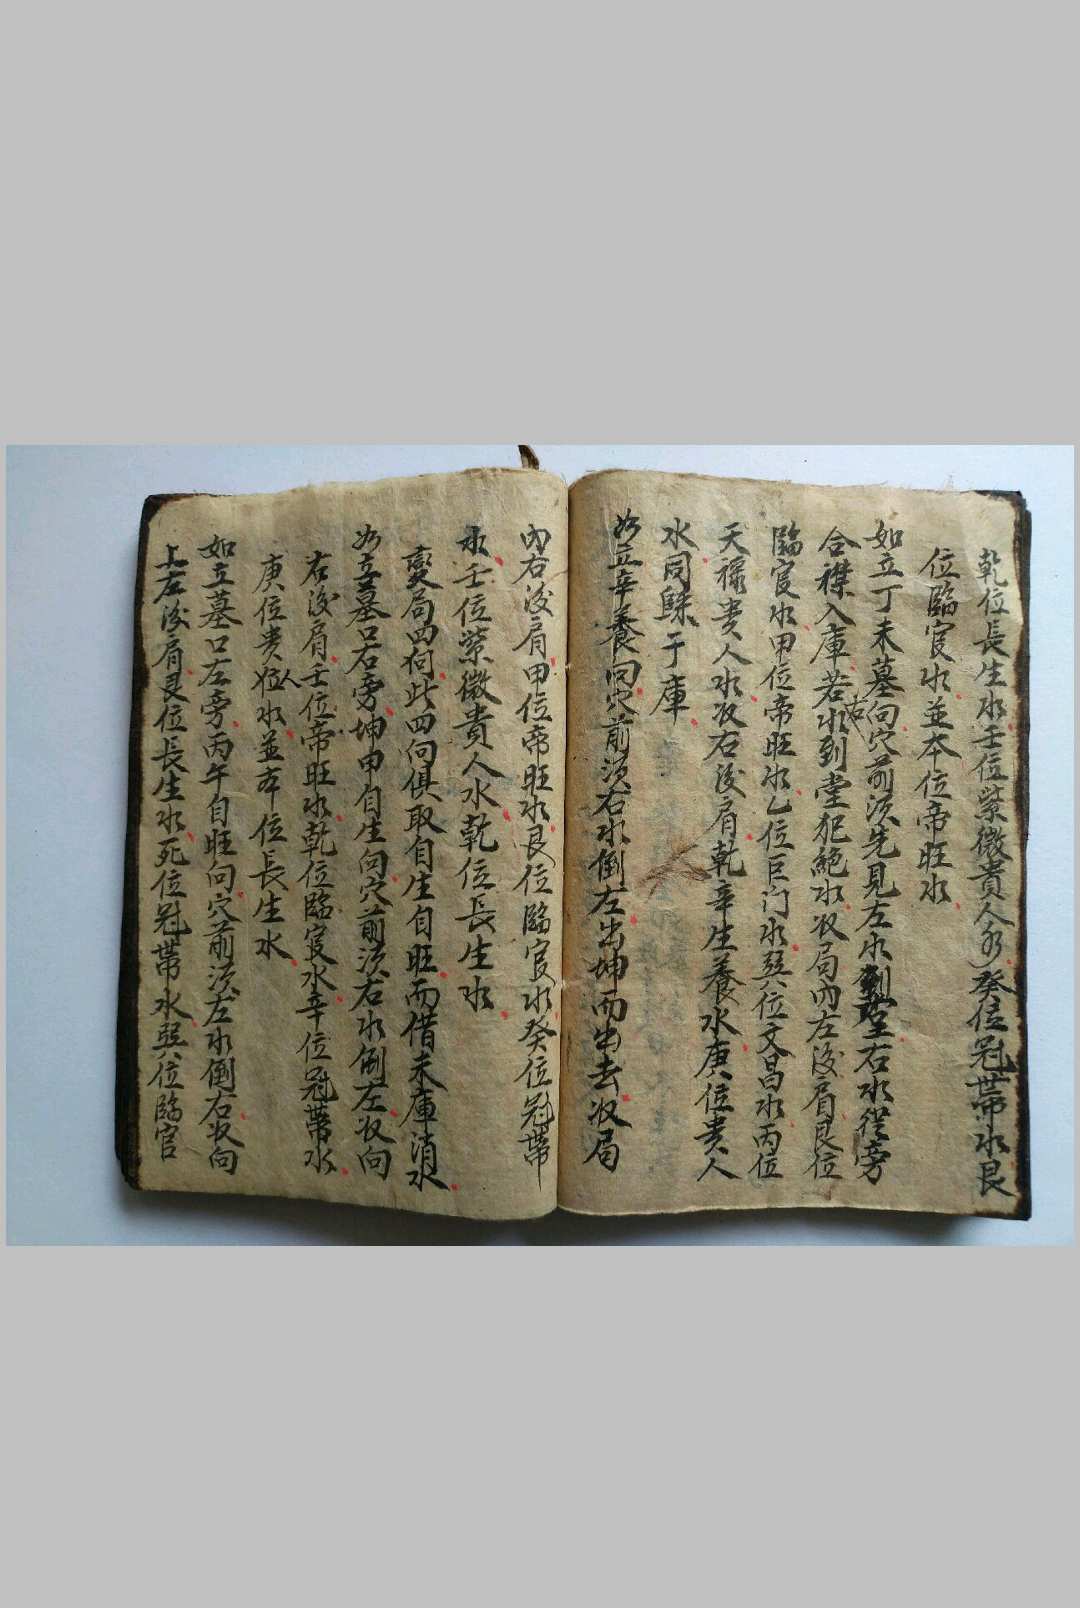 乾位長生水壬位紫微貴人水癸位冠帶水艮
位臨官水並本位帝旺水
如立丁未墓向穴前須先見左水倒右右水從旁
合襟入庫若右水到堂犯絕水收局內左後肩艮位
臨官水甲位帝旺水乙位巨门水巽位文昌水丙位
天祿贵人水收右後肩乾辛生養水庚位贵人
水同歸于庫
如立辛養向穴前須右水倒左出坤而出去收局
內右後肩甲位帝旺水艮位臨官水癸位冠帶
水壬位紫微貴人水乾位長生水
變局四向此四向俱取自生自旺而借未庫消水
如立墓口右旁坤甲自生向穴前須右水倒左收向
右後肩壬位帝旺水乾位臨官水辛位冠帶水
庚位贵人位水並本位長生水
如立墓口左旁丙午自旺向穴前須左水倒右收向
上左後肩艮位長生水死位冠帶水巽位臨官